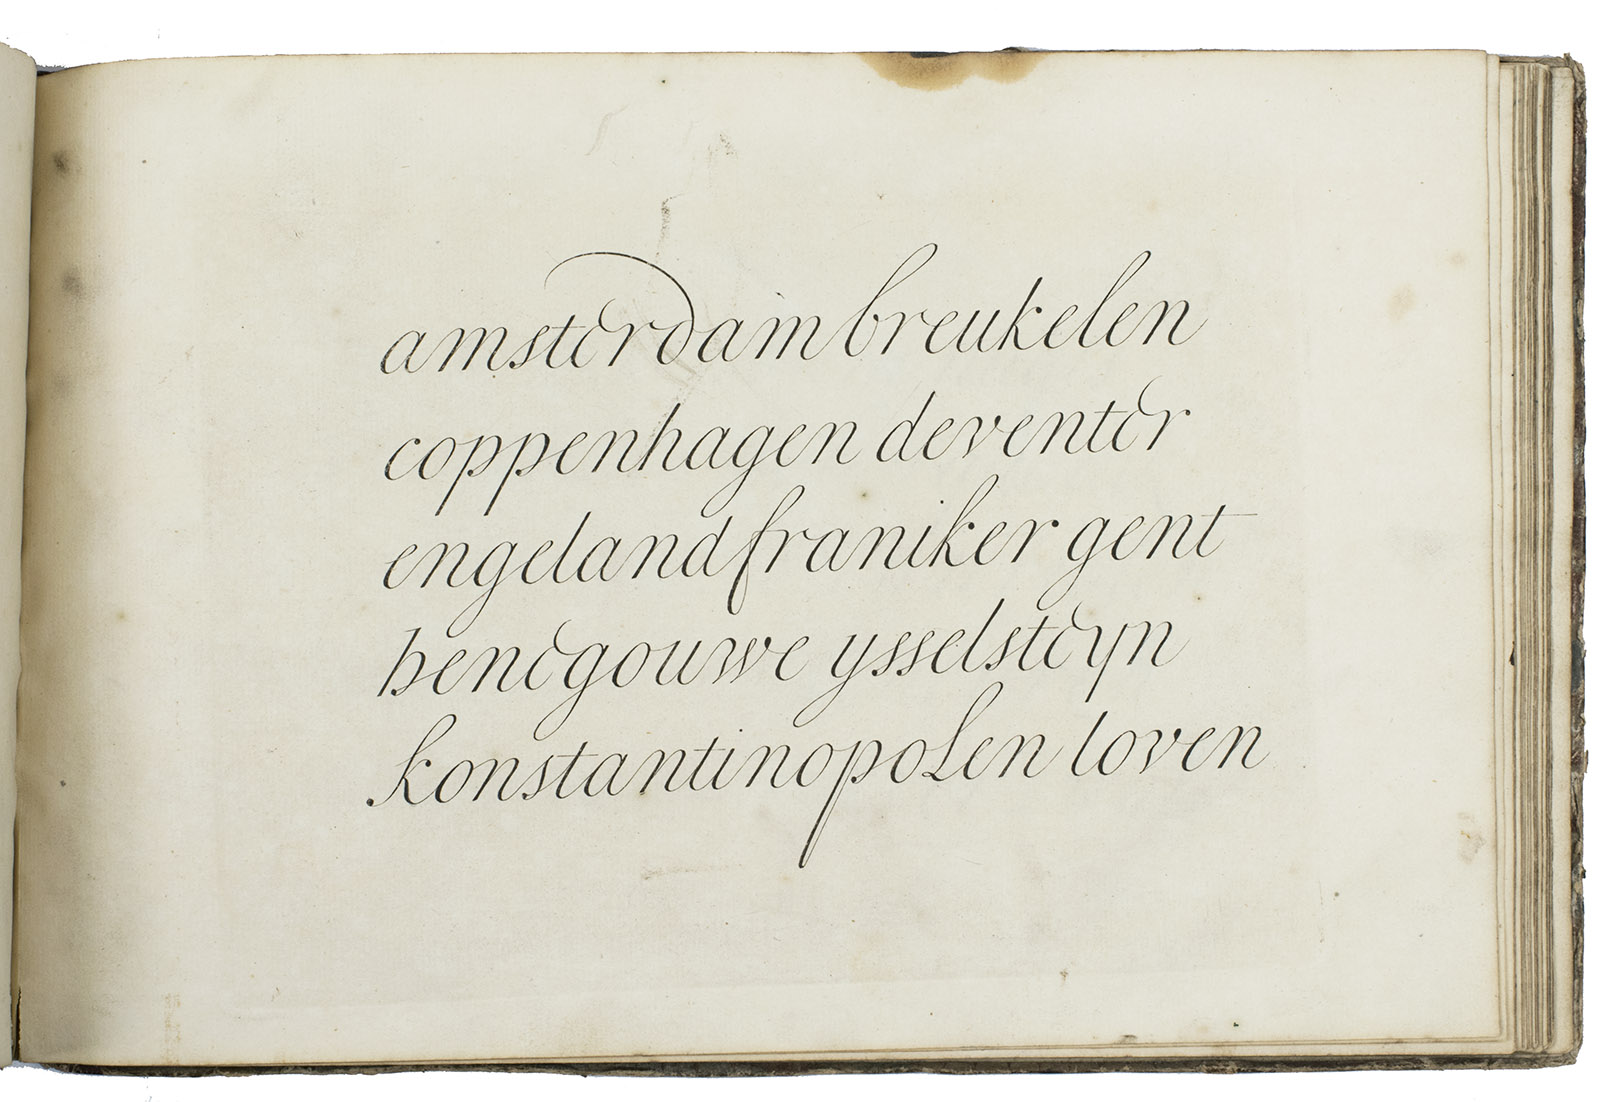 amsterdam breukelen
coppenhagen deventer
engeland franiker gent
henegouwe ysselsteyn
konstantinopolen loven